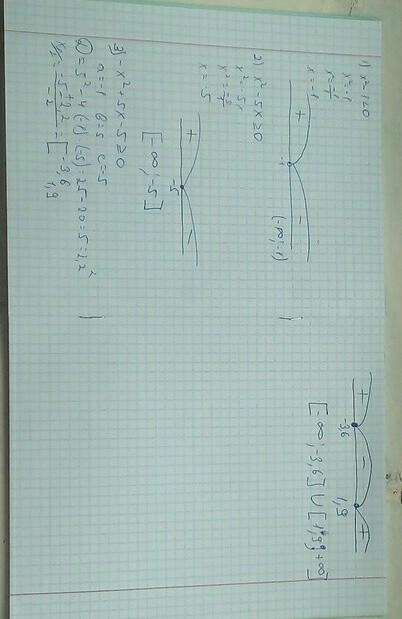 1) x²-1<0
x²=-1
x=-1
+ -
-1
(-∞; -1)
2) x²-5x≥0
x²-5x
x = -5
+ -
-5
[-∞; -5]
3) -x²+5x-5≥0
a=-1 b=5 c=-5
D=5²-4·(-1)·(-5)=25-20=5=2,2²
-3,6
1,9
+ - +
-3,6 1,9
[-∞; -3,6] ∪ [1,9; +∞]